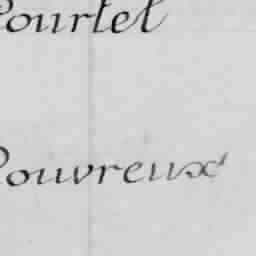 Pourtel
Pouvreux